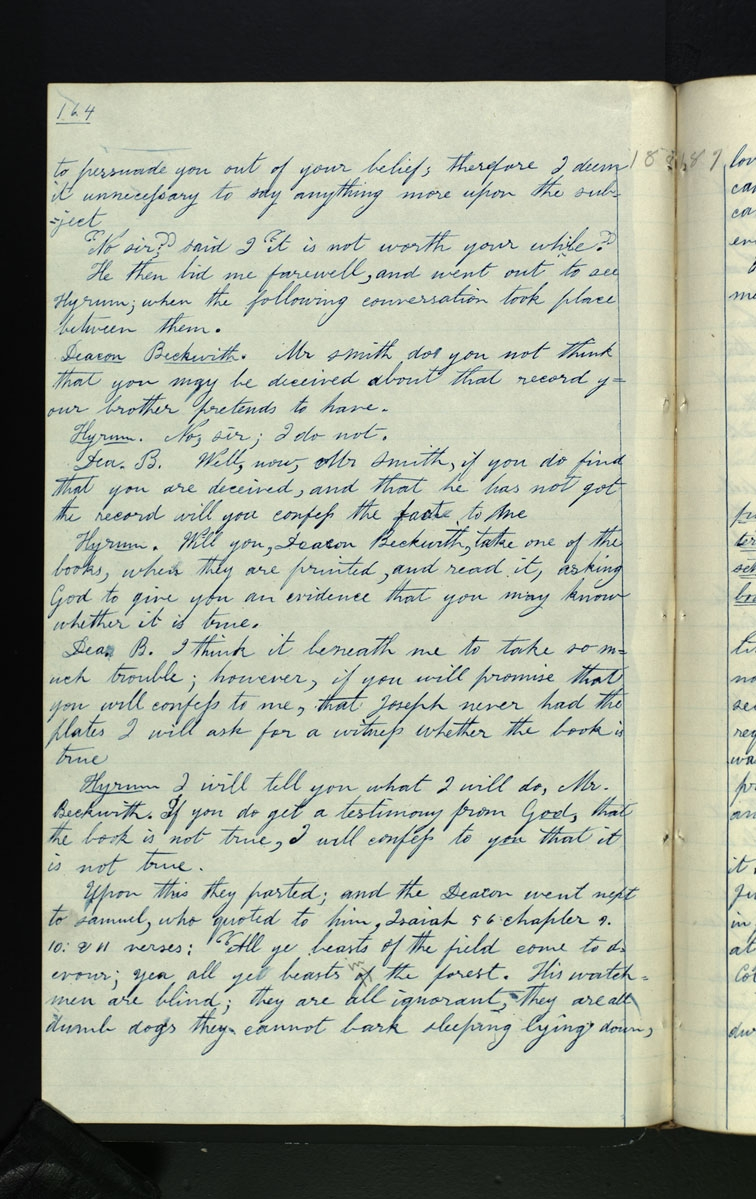 164
to persuade you out of your belief; therefore I deem
it unnecessary to say anything more upon the sub-
-ject
"No sir," said I "it is not worth your while."
He then bid me farewell, and went out to see
Hyrum; when the following conversation took place
between them.
Deacon Beckwith. Mr smith do you not think
that you may be deceived about that record y=
our brother pretends to have.
Hyrum. No, sir; I do not.
Dea. B. Well, now, Mr Smith, if you do find
that you are deceived, and that he has not got
the record will you confess the to me
Hyrum. Will you, Deacon Beckwith, take one of the
books, when they are printed, and read it, asking
God to give you an evidence that you may know
whether it is true.
Dea. B. I think it beneath me to take so m=
uch trouble; however, if you will promise that
you will confess to me, that Joseph never had the
plates I will ask for a witness whether the book is
true
Hyrum I will tell you what I will do, Mr.
Beckwith. If you do get a testimony from God, that
the book is not true, I will confess to you that it
is not true.
Upon this they parted; and the Deacon went next
to Samuel, who quoted to him, Isaiah 56 chapter 9.
10: & 11 verses: "All ye beasts of the field come to d-
evour; yea all ye beasts the forest. His watch=
men are blind; they are all ignorant, they are all
dumb dogs they cannot bark sleeping lying down,
lov
me
it
in